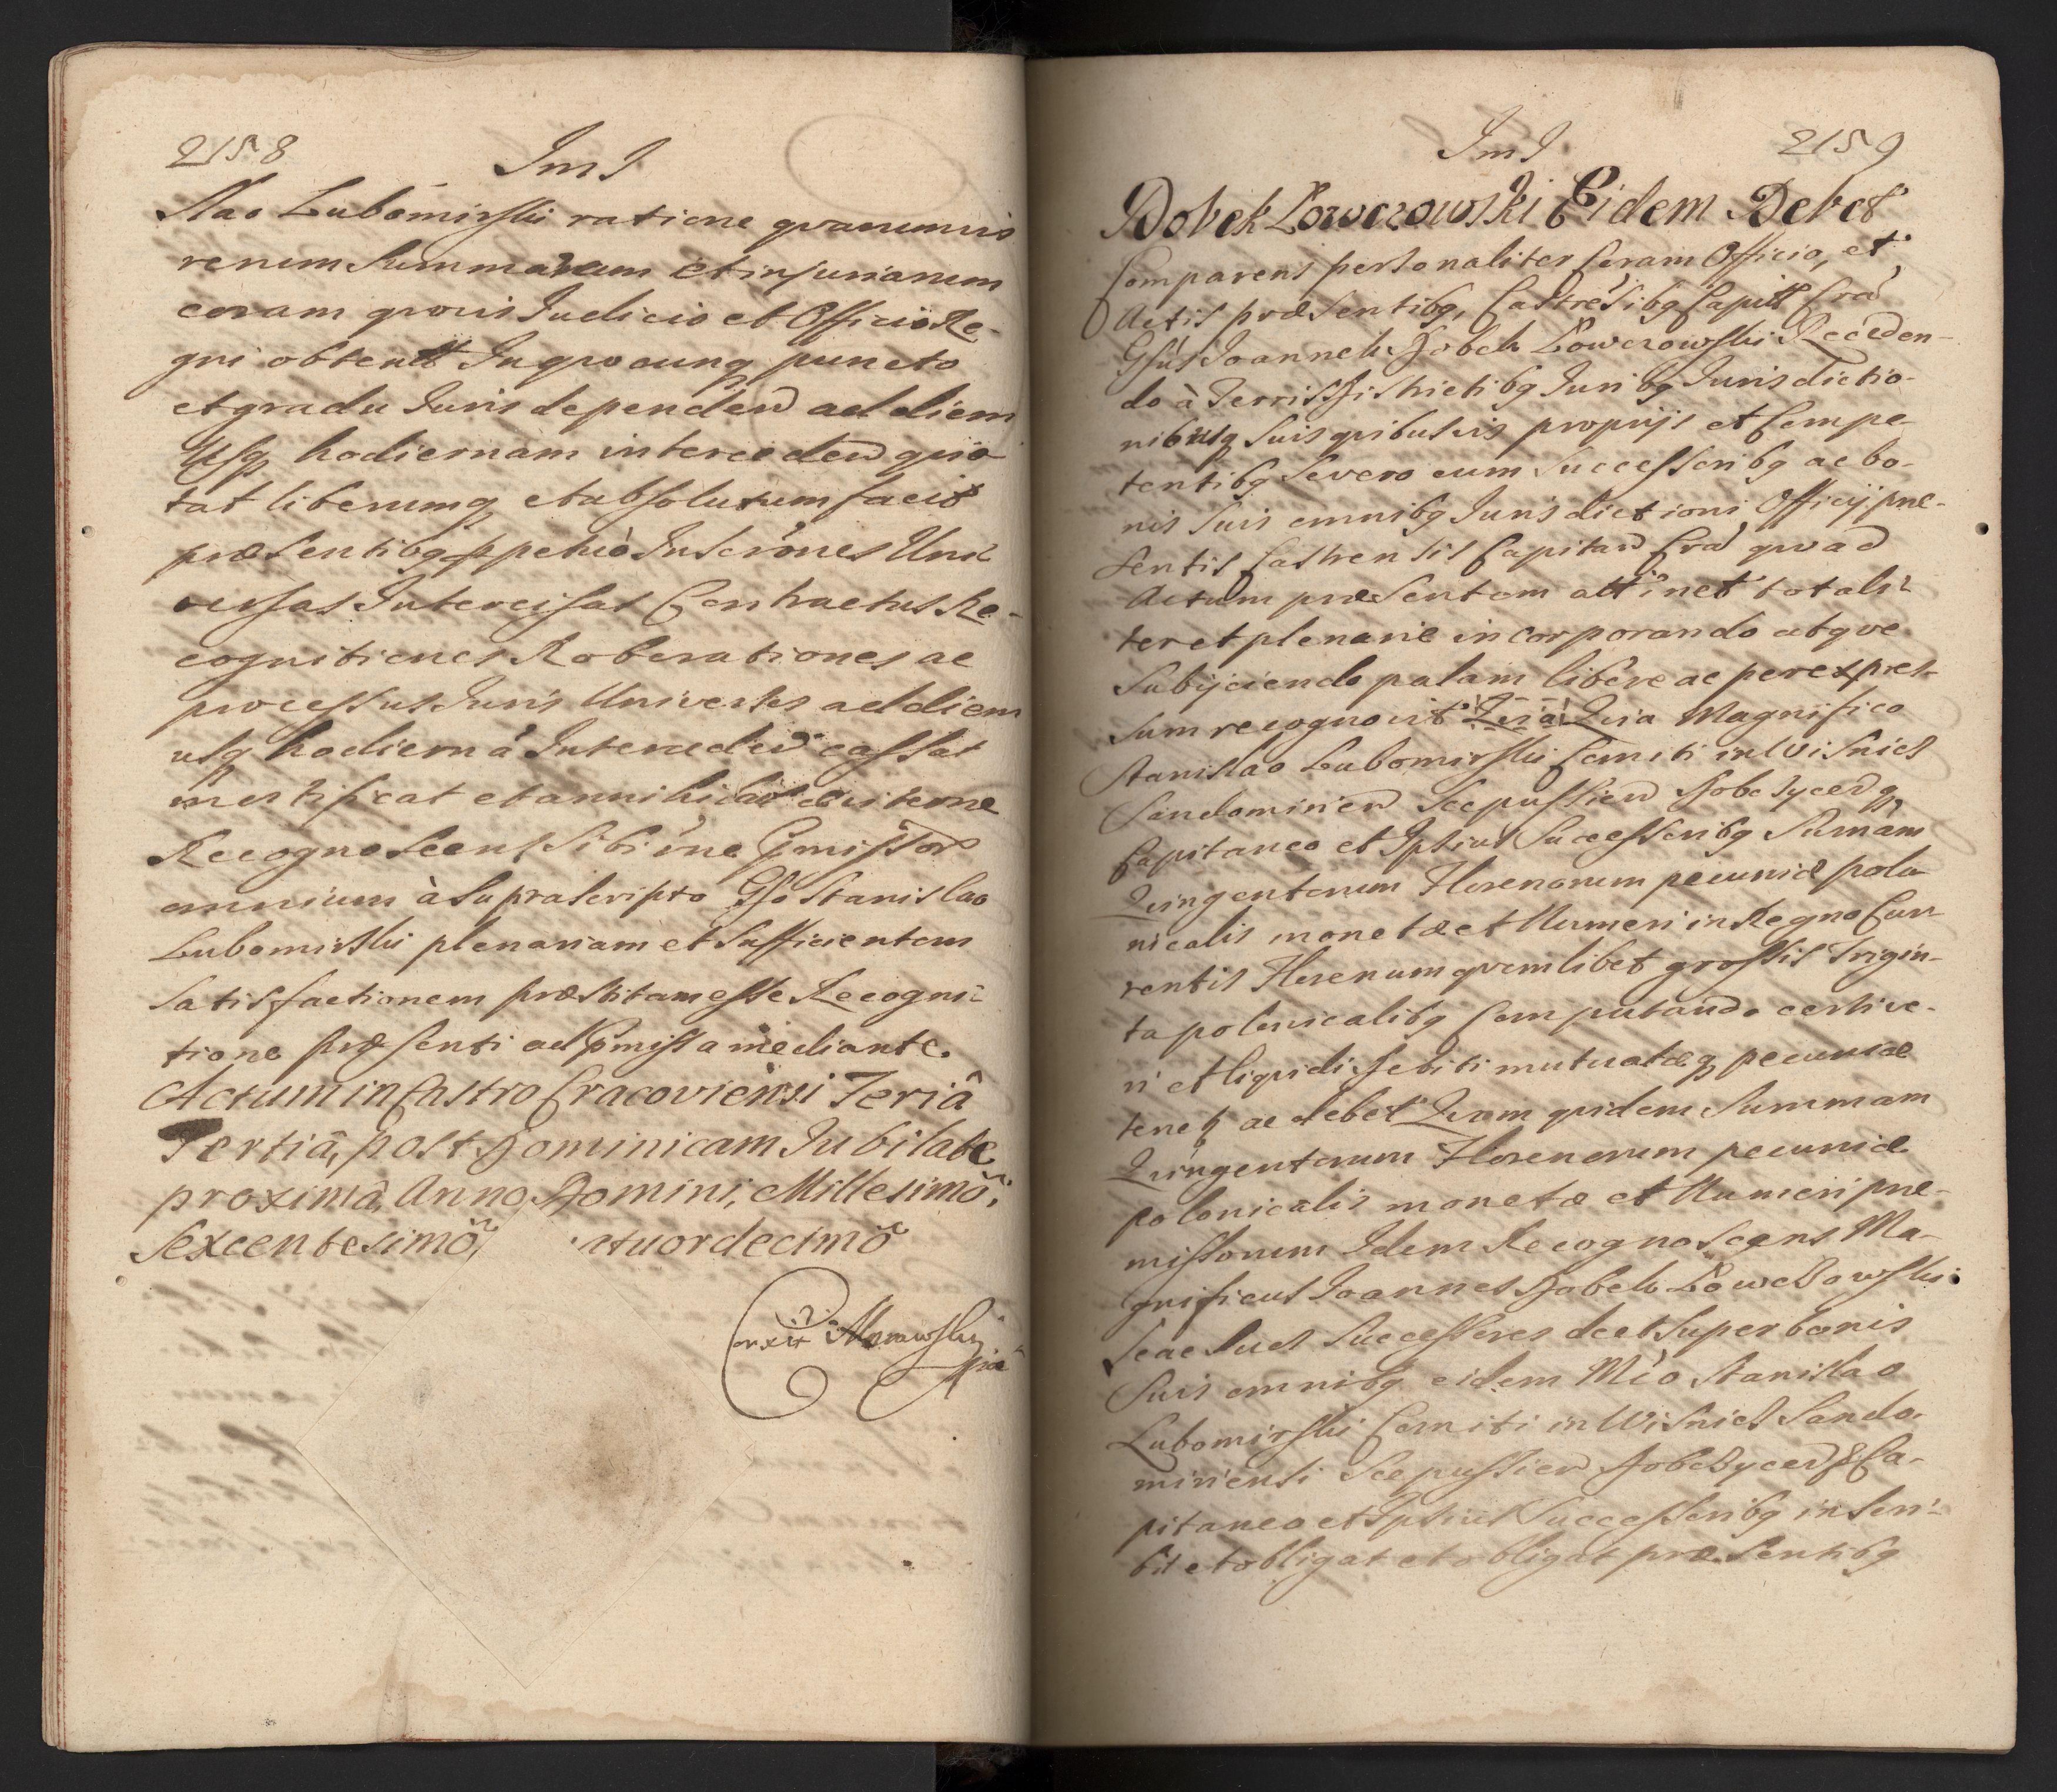 2158
ImI
slao Lubomirski ratione qvarumvis
rerum Summarum et injuriarum
coram qvovis Judicio et Officio Re-
gni obtent In qvocunq puncto
et gradu Juris dependen ad diem
Usq hodiernam interceden qvie
tat liberumq et absolutum facit
præsentibq ppetuò Inscrönes Uni
versas Intercisas Contractus Re-
cognitiones Roborationes ac
processus Juris Universos ad diem
usq hodiernã Interceden cassat
mortificat et annihilat
Recognoscens Sibi Pmissor
omnium à Suprascripto Gso Stanislao
Lubomirski plenariam et Sufficientem
Satisfactionem præstitam esse Recogni-
tione præsenti ad Pmissa mediante.
Actum in Castro Cracoviensi Feriâ
Tertiâ, post Dominicam Jubilate
proximâ, Anno Domini, Millesimo,
Sexcentesimo, tuordecimo
Corrxit Morawski
2159
ImI
Dobek Lowczowski Eidem Debet
Comparens personaliter Coram Officio, et
Actis præsentibq, Castrësibq Capit Cra
Gsus Joannes Dobek Lowczowski Receden-
do à Terris Districtibq Juribq Jurisdictio-
nibusq Suis qvibusvis proprijs et Compe-
tentibq Severo cum Successoribq ac bo-
nis Suis omnibq Jurisdictioni Officij præ-
sentis Castrensis Capitan Cra qvo ad
Actum præsentem attinet totali-
ter et plenarie incorporando atqve
Subijciendo palam libere ac per expres-
sum recognovit Qvia Qvia Magnifico
Stanislao Lubomirski Comiti in Wisnicz
Sandomirien Scepussien Dobczycen q
Capitaneo et Ipsius Successoribq Sumam
Qvingentorum Florenorum pecuniæ polo
nicalis monetæ et Numeri in Regno Cur-
rentis Florenum qvemlibet grossis Trigin-
ta polonicalibq Computando certi ve-
ri et liqvidi Debiti mutuatæq pecuniæ
tenet ac debet Qvam qvidem Summam
Qvingentorum Florenorum pecuniæ
polonicalis monetæ et Numeri præ-
missorum Idem Recognoscens Ma-
gnificus Joannes Dobek Lowczowski
Se ac Suos Successores de et Super bonis
Suis omnibq eidem Mco Stanislao
Lubomirski Comiti in Wisnicz Sando-
miriensi Scepussien Dobczycen & Ca-
pitaneo et Ipsius Successoribq inscri-
bit et obligat et obligat præsentibq